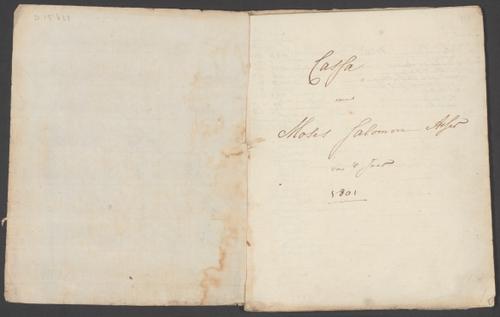 D 15421
Cassa
Moses Salomon Asser
van 't Jaar
1801